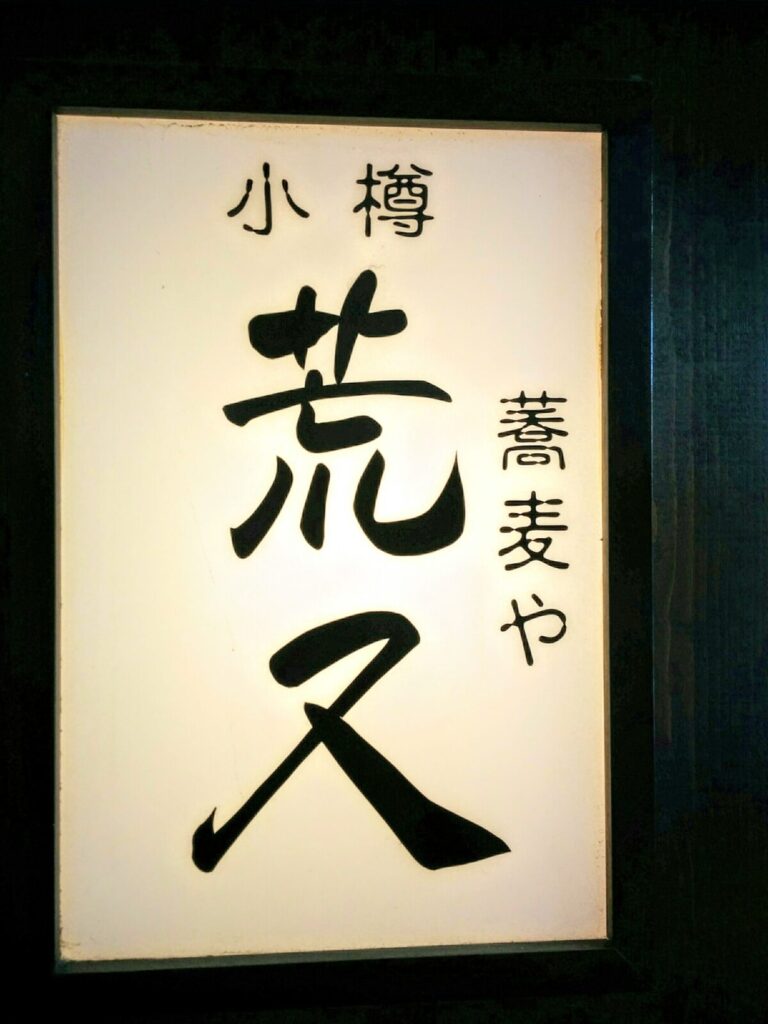 小樽
蕎麦や
荒又